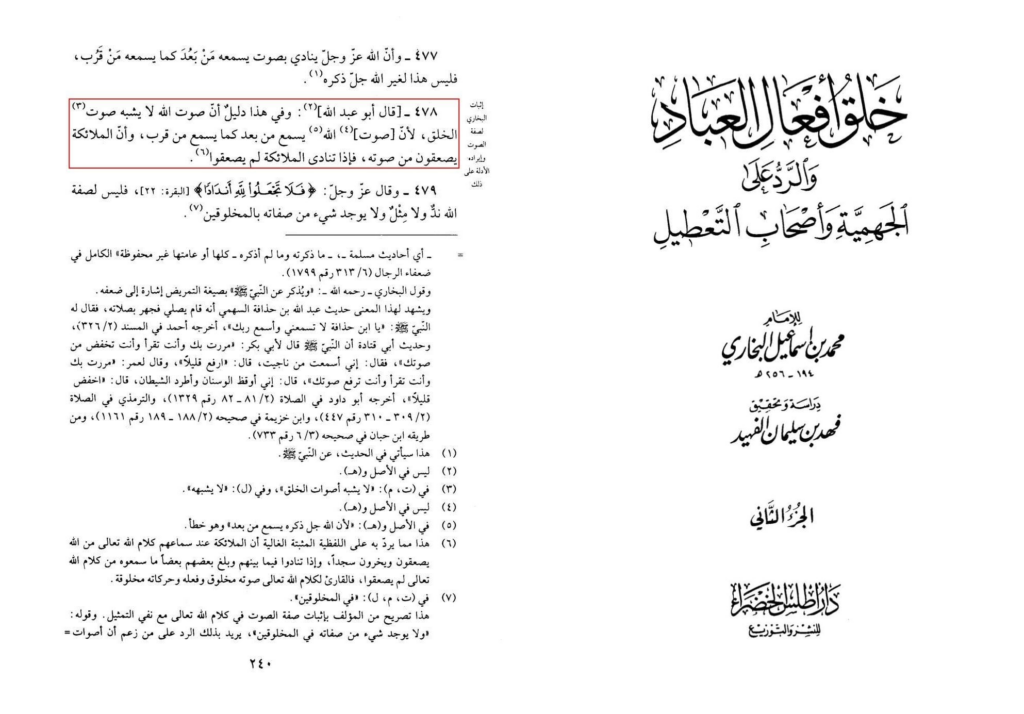 خلق أفعال العباد
والرد على
الجهمية وأصحاب التعطيل
للإمام
محمد بن إسماعيل البخاري
١٩٤ - ٢٥٦ هـ
دراسة وتحقيق
فهد بن سليمان الفهيد
الجزء الثاني
دار أطلس الخضراء
للنشر والتوزيع
٤٧٧ ـ وأنّ الله عزّ وجلّ ينادي بصوت يسمعه مَنْ بَعُدَ كما يسمعه مَنْ قَرُب،
فليس هذا لغير الله جلّ ذكره(١).
٤٧٨ ـ [قال أبو عبد الله](٢): وفي هذا دليلٌ أنّ صوت الله لا يشبه صوت(٣)
الخلق، لأنّ [صوت](٤) الله(٥) يسمع من بعد كما يسمع من قرب، وأنّ الملائكة
يصعقون من صوته، فإذا تنادى الملائكة لم يصعقوا(٦).
إثبات
البخاري
لصفة
الصوت
وإيراده
الأدلة على
ذلك
٤٧٩ ـ وقال عزّ وجلّ: ﴿فَلَا تَجْعَلُوا لِلَّهِ أَندَادًا﴾ [البقرة: ٢٢]، فليس لصفة
الله ندٌّ ولا مِثْلٌ ولا يوجد شيء من صفاته بالمخلوقين(٧).
= ـ أي أحاديث مسلمة ـ، ـ ما ذكرته وما لم أذكره ـ كلها أو عامتها غير محفوظة» الكامل في
ضعفاء الرجال (٣١٣/٦ رقم ١٧٩٩).
وقول البخاري ـ رحمه الله ـ: «ويُذكر عن النّبيّ ﷺ» بصيغة التمريض إشارة إلى ضعفه.
ويشهد لهذا المعنى حديث عبد الله بن حذافة السهمي أنه قام يصلي فجهر بصلاته، فقال له
النّبيّ ﷺ: «يا ابن حذافة لا تسمعني وأسمع ربك»، أخرجه أحمد في المسند (٣٢٦/٢)،
وحديث أبي قتادة أن النّبيّ ﷺ قال لأبي بكر: «مررت بك وأنت تقرأ وأنت تخفض من
صوتك»، فقال: إني أسمعت من ناجيت، قال: «ارفع قليلاً»، وقال لعمر: «مررت بك
وأنت تقرأ وأنت ترفع صوتك»، قال: إني أوقظ الوسنان وأطرد الشيطان، قال: «اخفض
قليلاً»، أخرجه أبو داود في الصلاة (٨١/٢ ـ ٨٢ رقم ١٣٢٩)، والترمذي في الصلاة
(٣٠٩/٢ ـ ٣١٠ رقم ٤٤٧)، وابن خزيمة في صحيحه (١٨٨/٢ ـ ١٨٩ رقم ١١٦١)، ومن
طريقه ابن حبان في صحيحه (٦/٣ رقم ٧٣٣).
(١) هذا سيأتي في الحديث، عن النّبيّ ﷺ.
(٢) ليس في الأصل و(هـ).
(٣) في (ت، م): «لا يشبه أصوات الخلق»، وفي (ل): «لا يشبهه».
(٤) ليس في الأصل و(هـ).
(٥) في الأصل و(هـ): «لأن الله جل ذكره يسمع من بعد» وهو خطأ.
(٦) هذا مما يردّ به على اللفظية المثبتة الغالية أن الملائكة عند سماعهم كلام الله تعالى من الله
يصعقون ويخرون سجداً، وإذا تنادوا فيما بينهم وبلغ بعضهم بعضاً ما سمعوه من كلام الله
تعالى لم يصعقوا، فالقارئ لكلام الله تعالى صوته مخلوق وفعله وحركاته مخلوقة.
(٧) في (ت، م، ل): «في المخلوقين».
هذا تصريح من المؤلف بإثبات صفة الصوت في كلام الله تعالى مع نفي التمثيل. وقوله:
«ولا يوجد شيء من صفاته في المخلوقين»، يريد بذلك الرد على من زعم أن أصوات =
٢٤٠